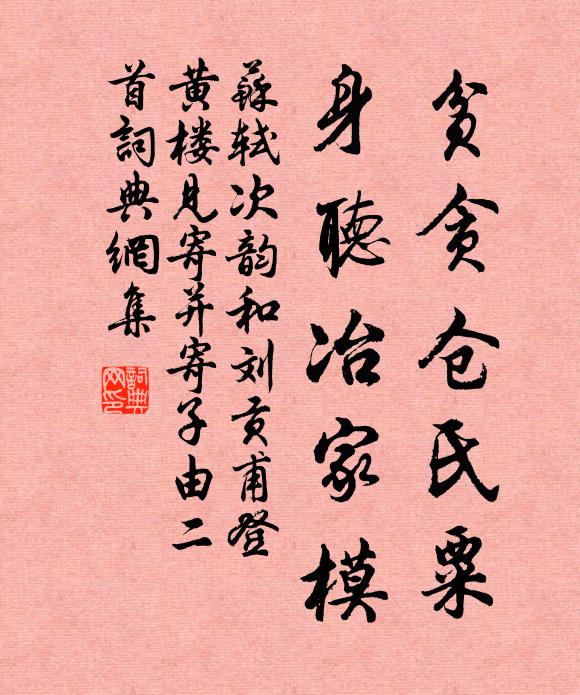 贫贪仓氏粟
身聽冶家模
蘇轼次韵和刘贡甫登
黄楼见寄并寄子由二
首詞典網集
詞典
网印